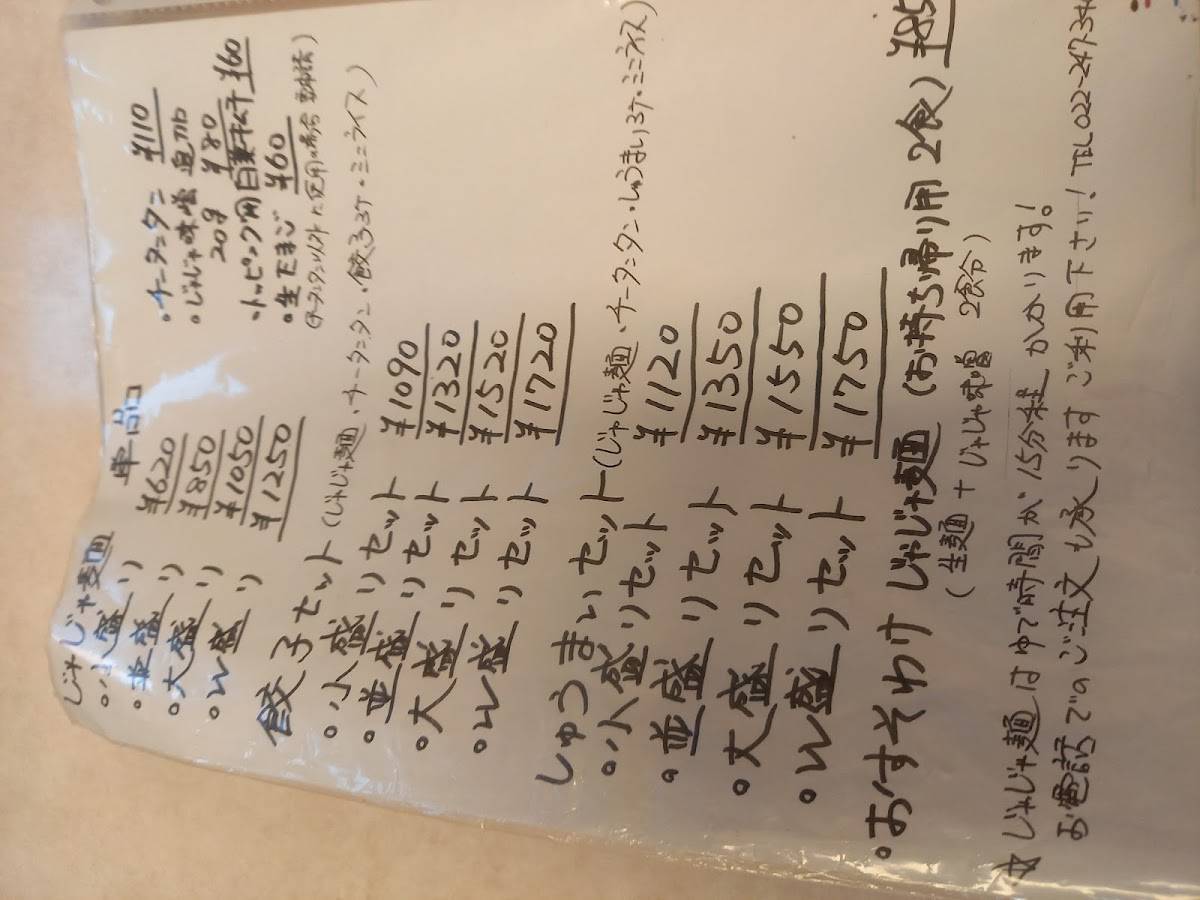 じゃじゃ麺 単品
○小盛り ¥620
○並盛り ¥850
○大盛り ¥1050
○W盛り ¥1250
○チータンタン ¥110
○じゃじゃ味噌 追加
20g ¥80
○トッピング用白菜キムチ ¥60
○生たまご ¥60
(チータンタン以外に使用の場合
餃子セット(じゃじゃ麺・チータンタン・餃子3ケ・ミニライス)
○小盛りセット ¥1090
○並盛りセット ¥1320
○大盛りセット ¥1520
○W盛りセット ¥1720
しゅうまいセット(じゃじゃ麺・チータンタン・しゅうまい3ケ・ミニライス)
○小盛りセット ¥1120
○並盛りセット ¥1350
○大盛りセット ¥1550
○W盛りセット ¥1750
・おすそわけ じゃじゃ麺 (お持ち帰り用 2食) ¥85
(生麺 + じゃじゃ味噌 2食分)
☆ じゃじゃ麺はゆで時間が15分程かかります!
お電話でのご注文も承ります ご利用下さい! TEL 022-247-34